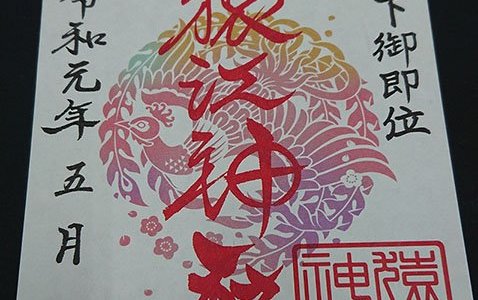 下御即位
猿江神社
令和元年五月
猿
神